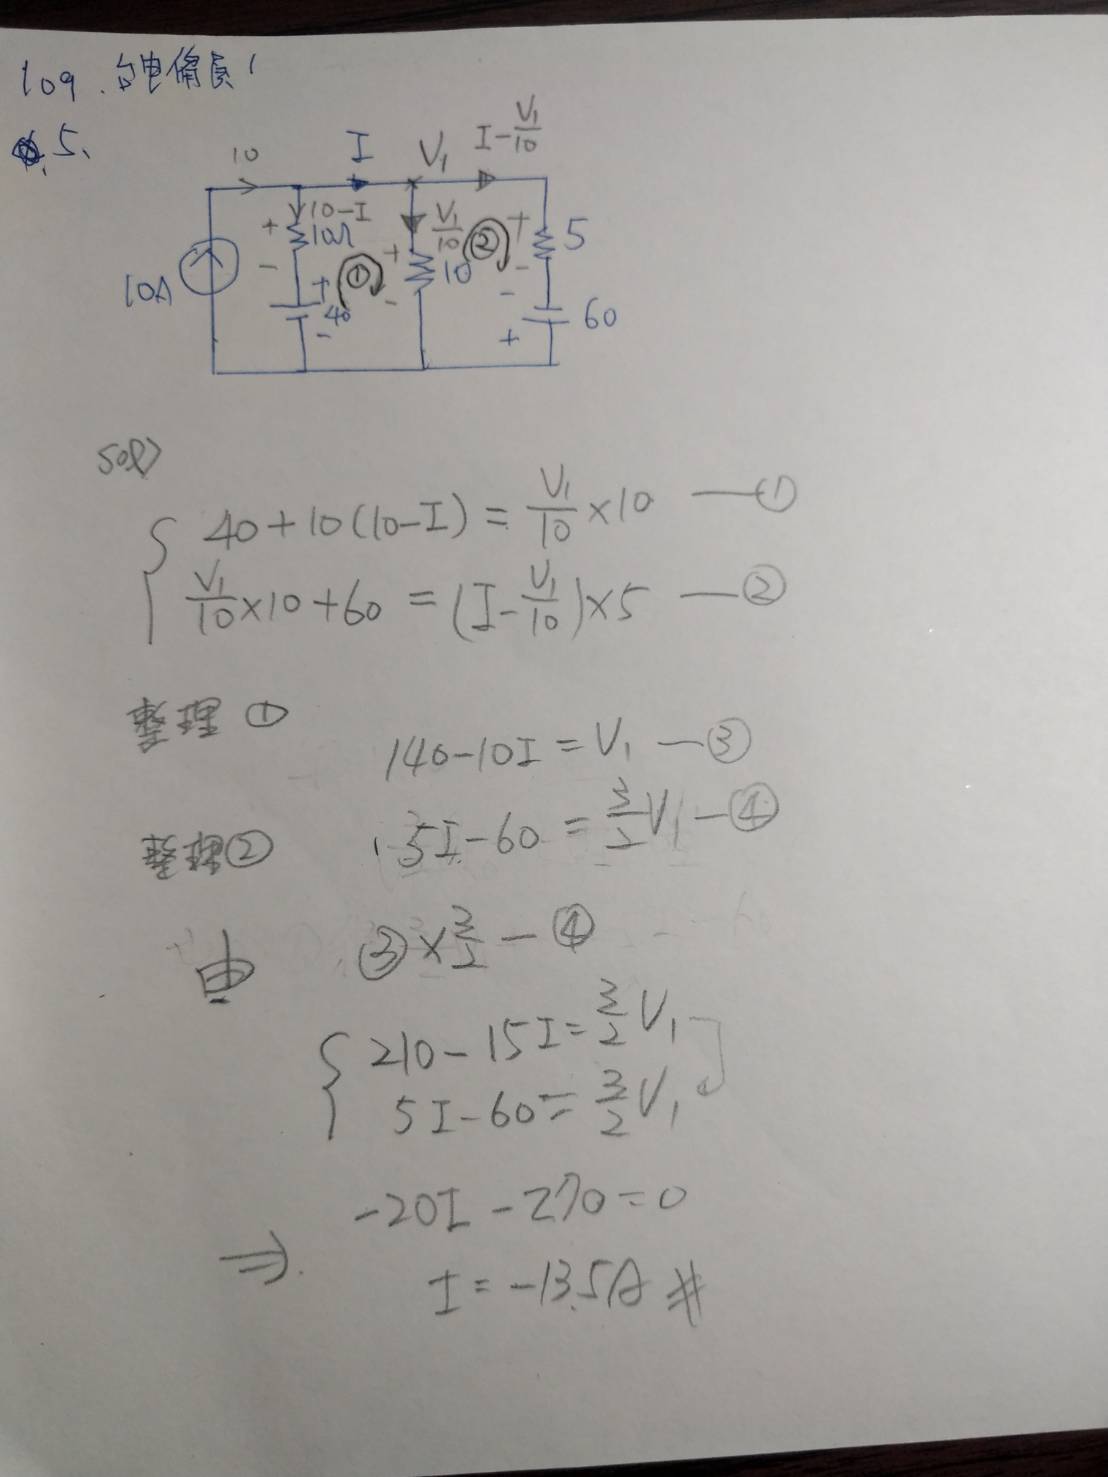 109.台电僱員1
5、
10
I
V₁
I-V₁/10
10-I
10Ω
V₁/10
②
5
10A
①
10
40
60
sol>
40+10(10-I)=V₁/10×10 —①
V₁/10×10+60=(I-V₁/10)×5 —②
整理①
140-10I=V₁ —③
整理②
5I-60=3/2V₁ —④
由
③×3/2-④
210-15I=3/2V₁
5I-60=3/2V₁
-20I-270=0
⇒
I=-13.5A #